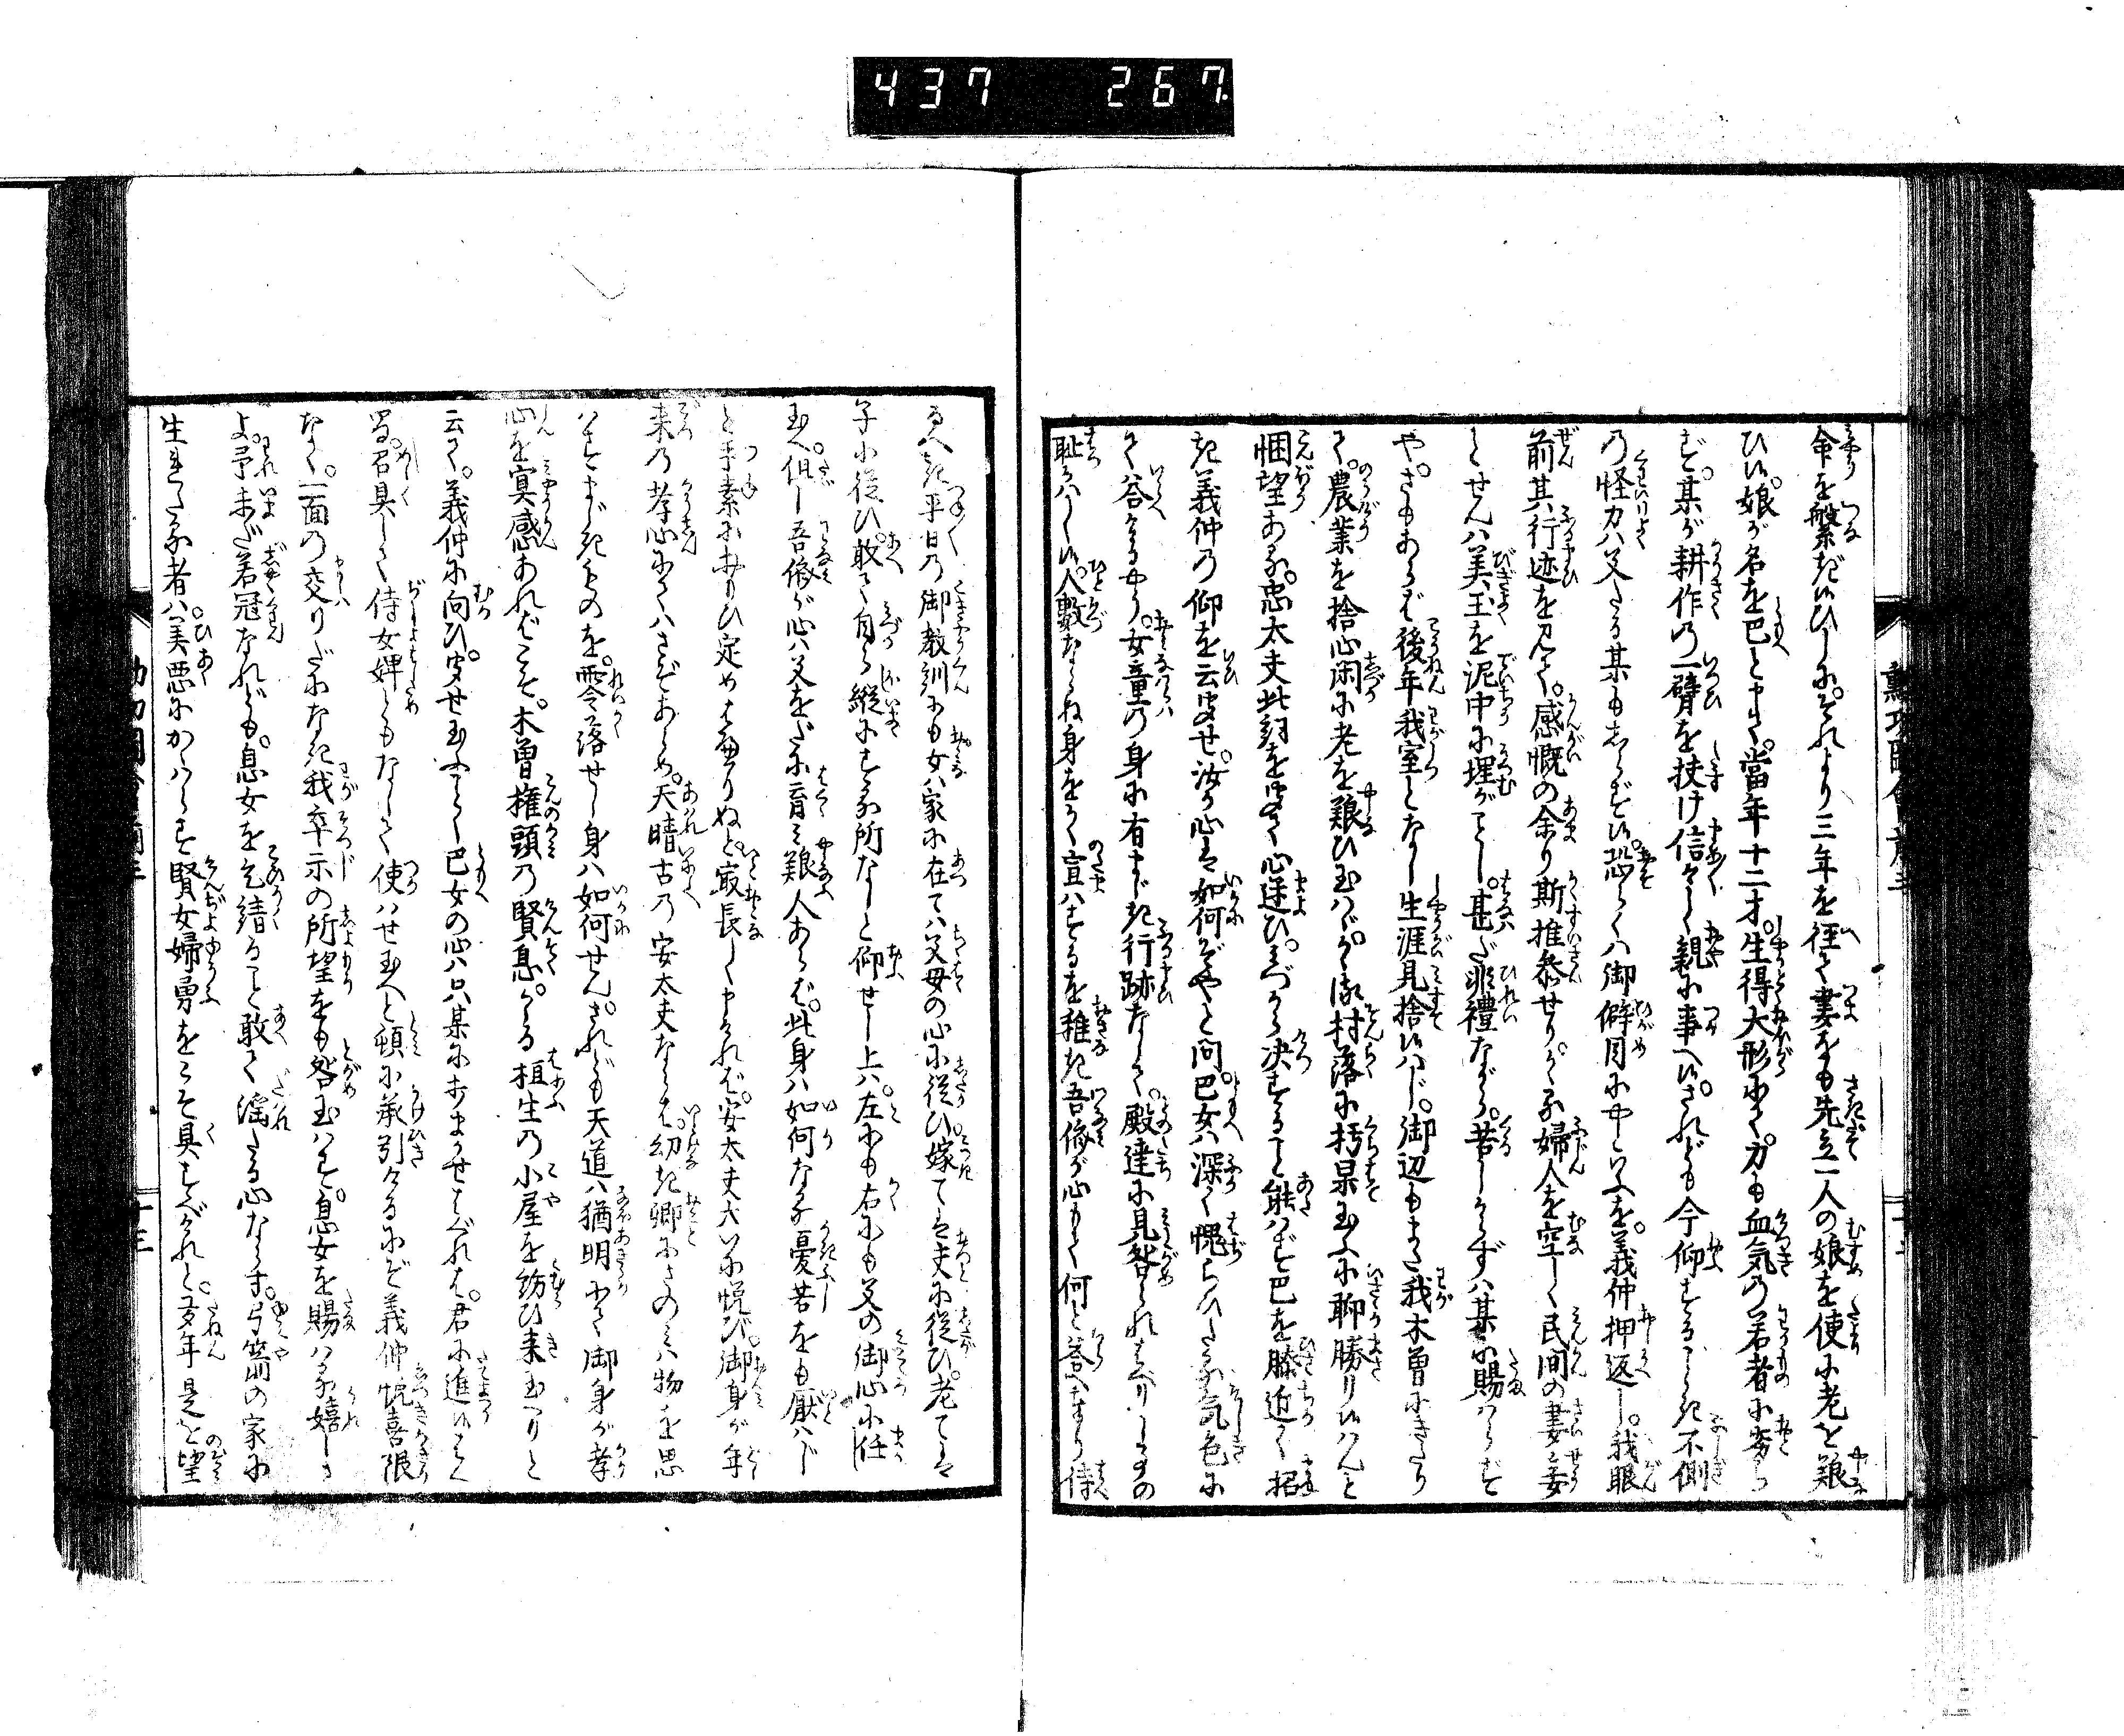 437 267
命を繋ぎ候ひしに。それより三年を経て妻をも先立一人の娘を便に老を養
ひ候。娘が名を巴と申て。當年十二才。生得大形にて。力も血気の若者に劣ら
ず。某が耕作の一臂を扶け信々しく親に事へ候。されども今仰するごとき不側
の怪力ハ父たる某もしらず候。恐らくハ御僻目にやといふを。義仲押返し。我眼
前其行迹を見て。感慨の余り斯推参せり。かゝる婦人を空しく民間の妻妾
とせんハ美玉を泥中に埋がごとし。甚だ非禮ながら。苦しからずハ某に賜はらず
や。さもあらバ後年我室となし生涯見捨候ハじ。御辺もまた我木曽にきたり
て。農業を捨心閑に老を養ひ玉ハゞ。かゝる村落に朽果玉ふに聊勝り候ハんと
悃望ある。忠太夫此詞を聞て心迷ひ。みづから決することあたハず巴を膝近く招
き義仲の仰を云聞せ。汝が心は如何ぞやと問。巴女ハ深く愧らひたる気色に
て答けるやう。女童の身に有まじき行跡なして。殿達に見咎られまゐりしすの
耻かハしく候。人数ならぬ身をかく宣ハするを稚き吾儕が心もて何と答へまゐり侍
るべき平日の御教訓にも女ハ家に在てハ父母の心に従ひ。嫁ては夫に従ひ。老ては
子に従ひ。敢て自ら縦にする所なしと仰せし上ハ。左にも右にも父の御心に任
玉へ。但し吾儕が心ハ父をだに育み養人あらバ。此身ハ如何なる憂苦をも厭ハじ
と平素におもひ定めはべりぬと。最長しく申けれバ。安太夫大いに悦び。御身が年
来の孝心にてハさぞあらめ。天晴古の安太夫ならば。幼き卿にさのミハ物を思
ハすまじきものを。零落せし身ハ如何せん。されども天道ハ猶明にて御身が孝
心を冥感あれバこそ。木曽権頭の賢息。かゝる植生の小屋を訪ひ来玉へりと
云て。義仲に向ひ。聞せ玉ふごとし巴女の心ハ只某にまかせはべれば。君に進候はん
召具して侍女婢ともなして使ハせ玉へと頓に承引けるにぞ義仲悦喜限
なく。一面の交りだになき我卒示の所望をも咎玉ハず。息女を賜ハる嬉しさ
よ。予未だ若冠なれども。息女を乞請ること敢て淫たる心ならず。弓箭の家に
生れたる者ハ美悪にかゝハらず賢女婦勇をこそ具すべけれと。多年是を望
十三